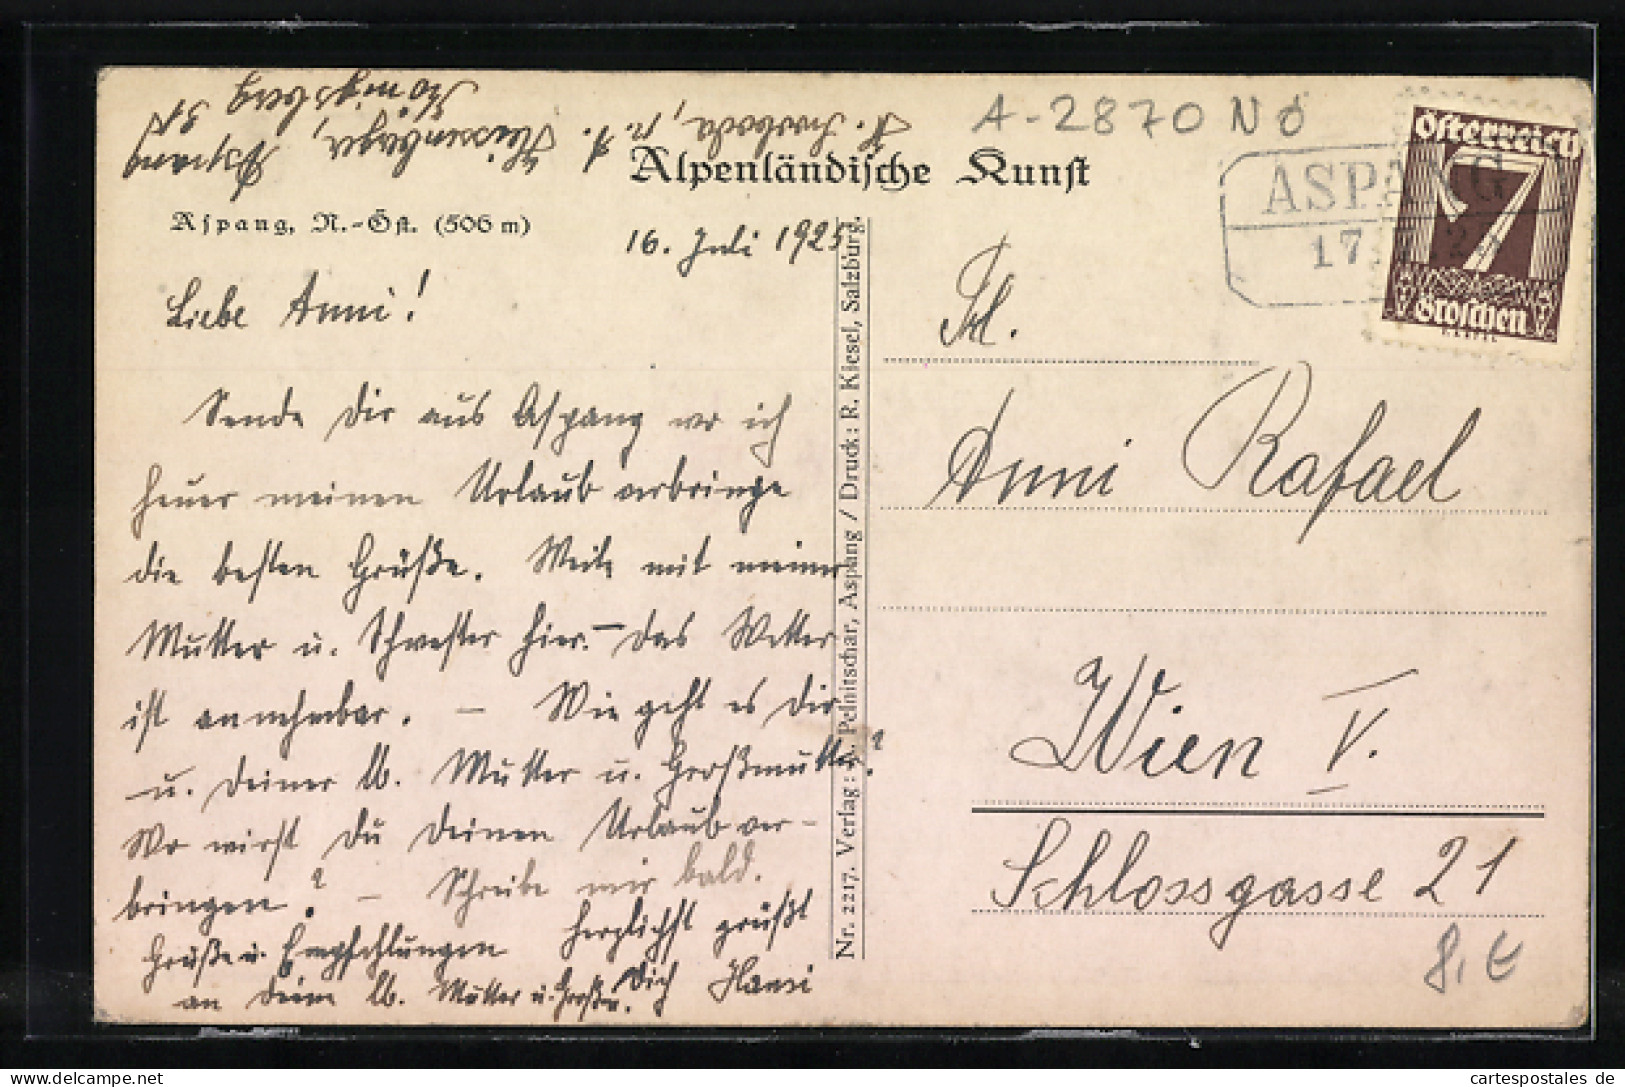 A-2870 N Ö
Königsberg
Aspang
H. Swoboda
Alpenländische Kunst
Aspang, N.-Öst. (506 m)
ASPANG
17
Österreich
7
Groschen
16. Juli 1925
Liebe Anni!
Sende Dir aus Aspang wo ich
heuer meinen Urlaub verbringe
die besten Grüße. Weile mit meiner
Mutter u. Schwester hier. – Das Wetter
ist annehmbar. – Wie geht es Dir
u. Deiner lb. Mutter u. Großmutter?
Wo wirst Du Deinen Urlaub ver-
bringen? – Schreibe mir bald.
Grüße u. Empfehlungen herzlichst grüßt
an Deine lb. Mutter u. Großm. Dich Hansi
Nr. 2217. Verlag: Pelnitschar, Aspang / Druck: R. Kiesel, Salzburg.
Frl.
Anni Rafael
Wien V.
Schlossgasse 21
8,€
cartespostales.de